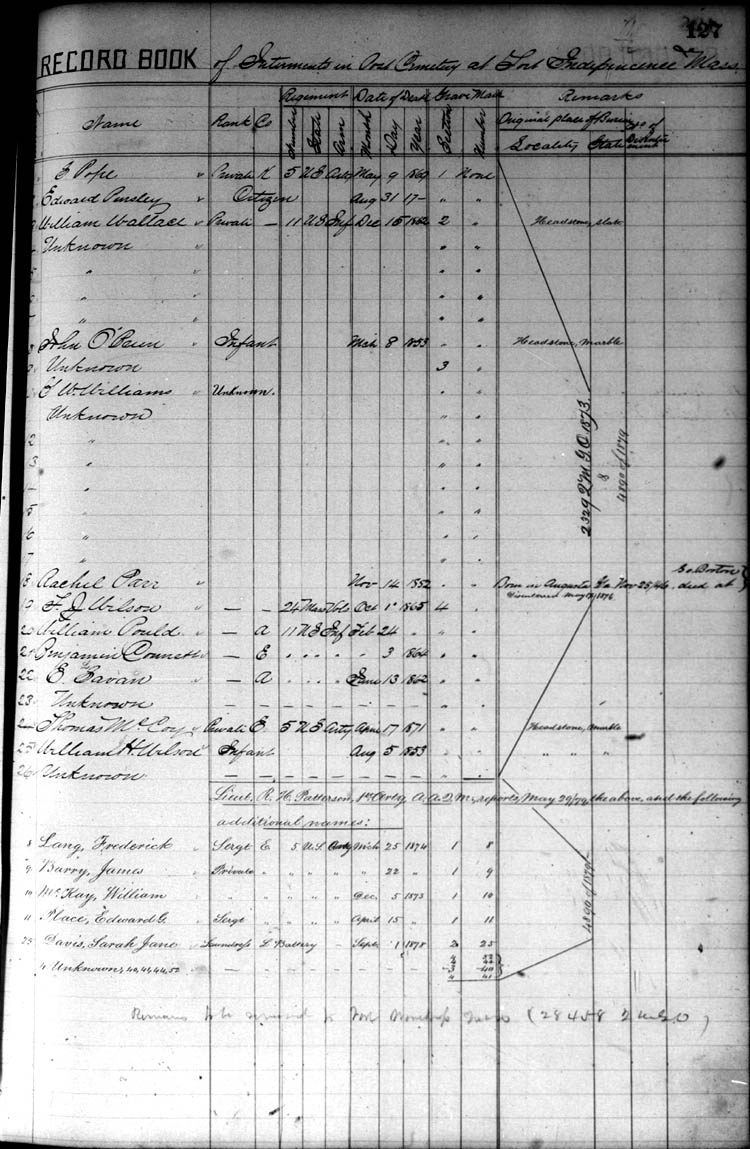 127
RECORD BOOK of Interments in Post Cemetery at Fort Independence Mass
Regiment Date of Death Grave Mark Remarks
Name Rank Co Number State Arm Month Day Year Section Number Original place of Burial
Locality State
Pope " Private K 5 U S Arty May 9 1 None
Edward Pursley " Citizen Aug 31 17- " "
William Wallace " Private - 11 U S Inf Dec 15 1862 2 " Headstone, slate
Unknown " " "
5 " " " "
6 " " " "
" " " "
8 John O'Brien " Infant Mch 8 1853 " " Headstone, marble
9 Unknown 3 "
W. Williams " Unknown. " "
Unknown " "
12 " " "
13 " " "
14 " " "
15 " " "
16 " " "
17 " " "
2329 Q M G O 1873.
4890 of 1879
So. Boston
18 Rachel Parr " Nov. 14 1852 " " Born in Augusta Ga Nov 25/46, died at
19 F. J. Wilson " - - 24 Mass Vols Oct 1" 1865 4 "
20 William Pould " - A 11 U S Inf Feb 24 " " "
21 Benjamin " - E " " " " 3 1864 " "
22 E. Savan " - A " " " June 13 1862 " "
23 Unknown - - - - - - - - " "
24 Thomas McCoy " Private E 5 U S Arty April 17 1871 " " Headstone, marble
25 William H. Wilson " Infant Aug 5 1853 " " " " "
26 Unknown - - - - - - - - " -
Lieut. R. H. Patterson, 1st Arty, A. A. Q. M., reports, May 29/79, the above, and the following
additional names:
8 Lang, Frederick " Sergt E 5 U.S. Arty Mch 25 1874 1 8
9 Barry, James " Private " " " " " 22 " 1 9
10 McKay, William " " " " " " Dec. 5 1873 1 10
11 Place, Edward G. " Sergt " " " " April 15 " 1 11
25 Davis, Sarah Jane " Laundress L Battery - Sept. 1 1878 2 25
4 Unknowns, 40, 41, 44, 52 - - - - - - - -
4 41
4890 of 1879
Remains to be removed to Fort (28458 Q M G O)